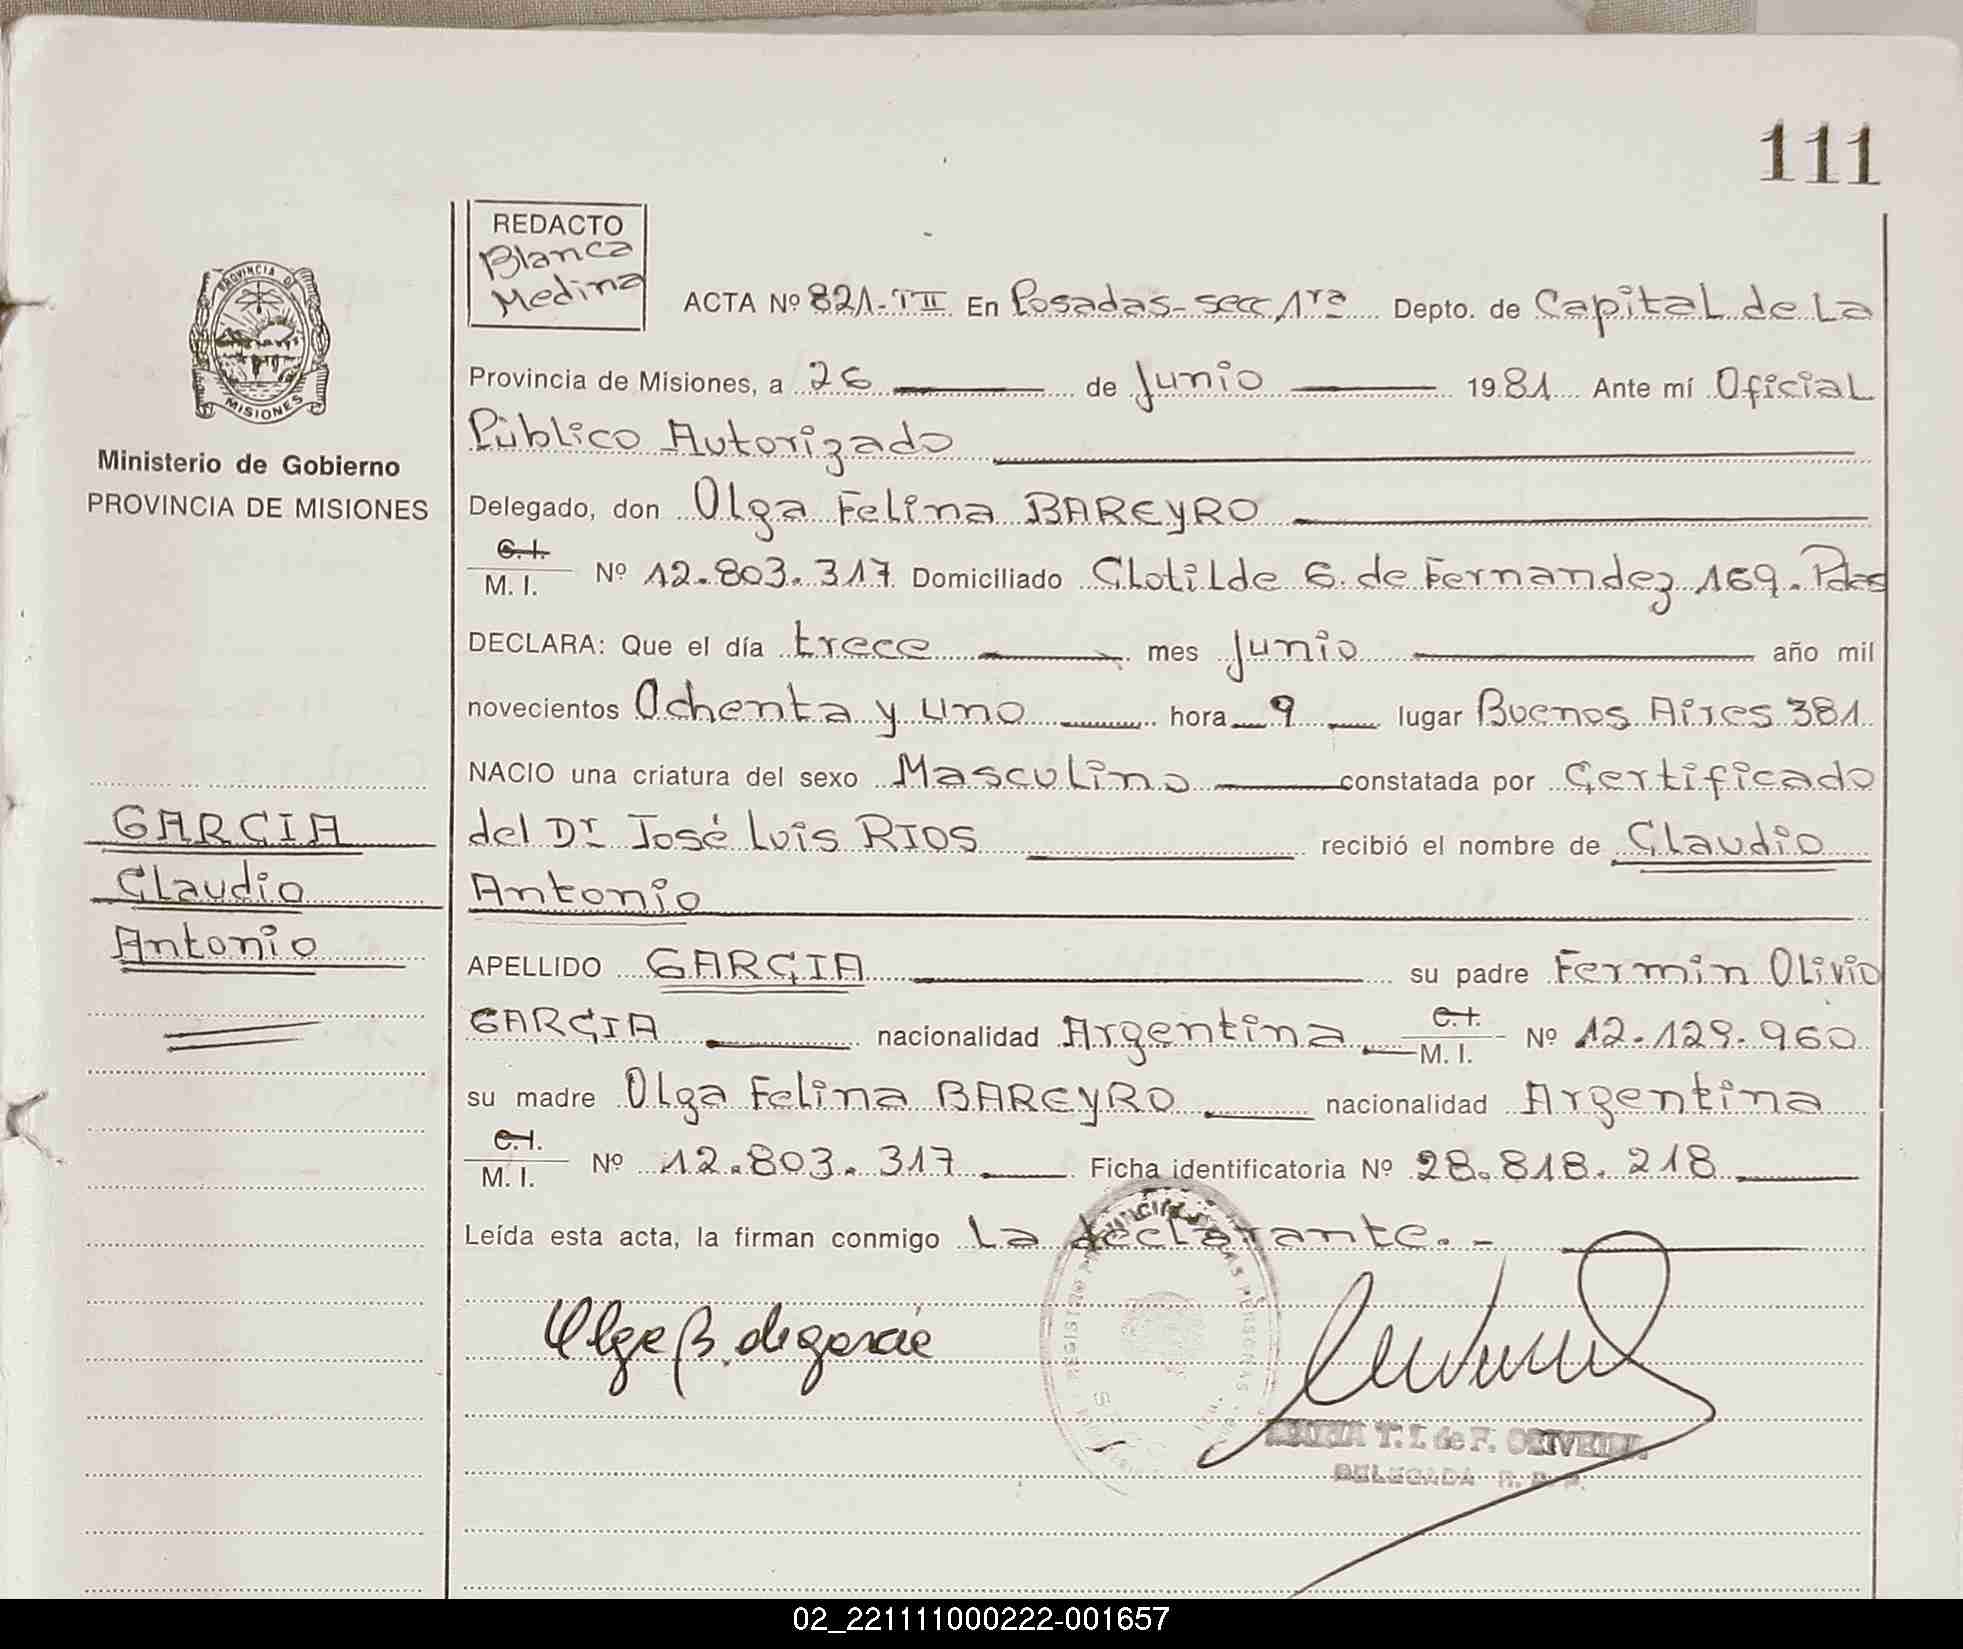 111
REDACTO
Blanca
Medina
PROVINCIA DE
MISIONES
Ministerio de Gobierno
PROVINCIA DE MISIONES
ACTA Nº 821-TII En Posadas-secc 1ra Depto. de Capital de La
Provincia de Misiones, a 26 de Junio 1981 Ante mí Oficial
Público Autorizado
Delegado, don Olga Felina BAREYRO
C.I.
M. I. Nº 12.803.317 Domiciliado Clotilde G. de Fernandez 169. Pdas
DECLARA: Que el día trece mes Junio año mil
novecientos Ochenta y uno hora 9 lugar Buenos Aires 381
NACIO una criatura del sexo Masculino constatada por Certificado
del Dr José Luis RIOS recibió el nombre de Claudio
Antonio
GARCIA
Claudio
Antonio
APELLIDO GARCIA su padre Fermin Olivio
GARCIA nacionalidad Argentina C.I.
M. I. Nº 12.129.960
su madre Olga Felina BAREYRO nacionalidad Argentina
C.I.
M. I. Nº 12.803.317 Ficha identificatoria Nº 28.818.218
Leída esta acta, la firman conmigo La declarante.-
Olga B. de garcia
MARIA T. I. de F. OLIVEIRA
DELEGADA R. P. P.
02_221111000222-001657